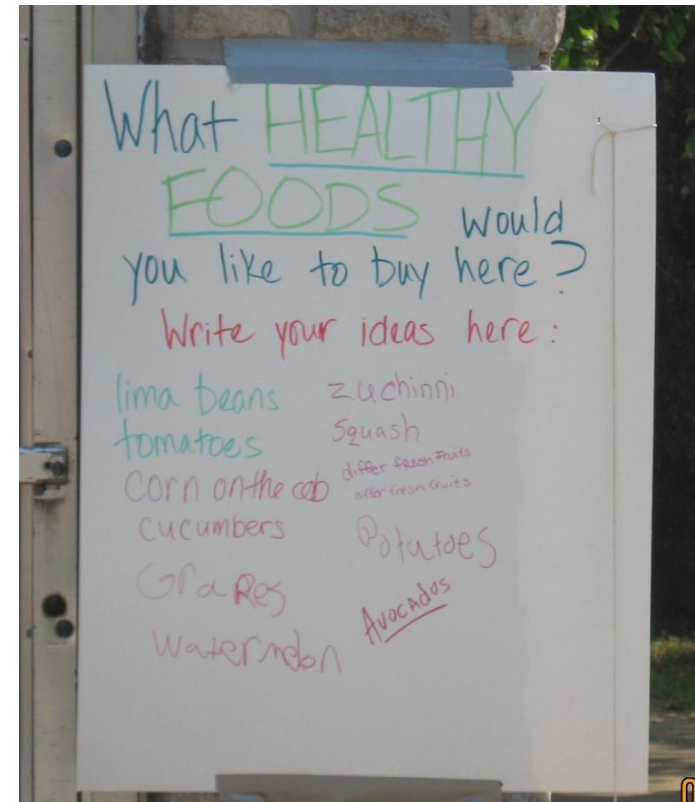 What HEALTHY
FOODS would
you like to buy here?
Write your ideas here:
lima beans
tomatoes
corn on the cob
cucumbers
Grapes
Watermelon
Zuchinni
Squash
differ fresh Fruits
offer fresh fruits
Potatoes
Avocados